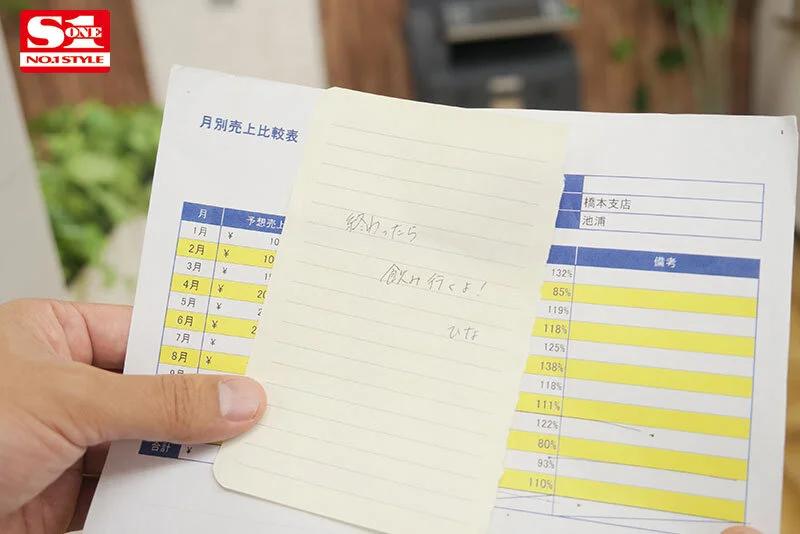 S1
ONE
NO.1 STYLE
月別売上比較表
橋本支店
池浦
月 予想売上
備考
1月 ¥ 10
2月 ¥ 10
3月 ¥ 1
4月 ¥ 20
5月 ¥ 2
6月 ¥ 2
7月 ¥
8月 ¥
合計 ¥
終わったら
飲み行くよ!
ひな
132%
85%
119%
118%
125%
138%
118%
111%
122%
80%
93%
110%